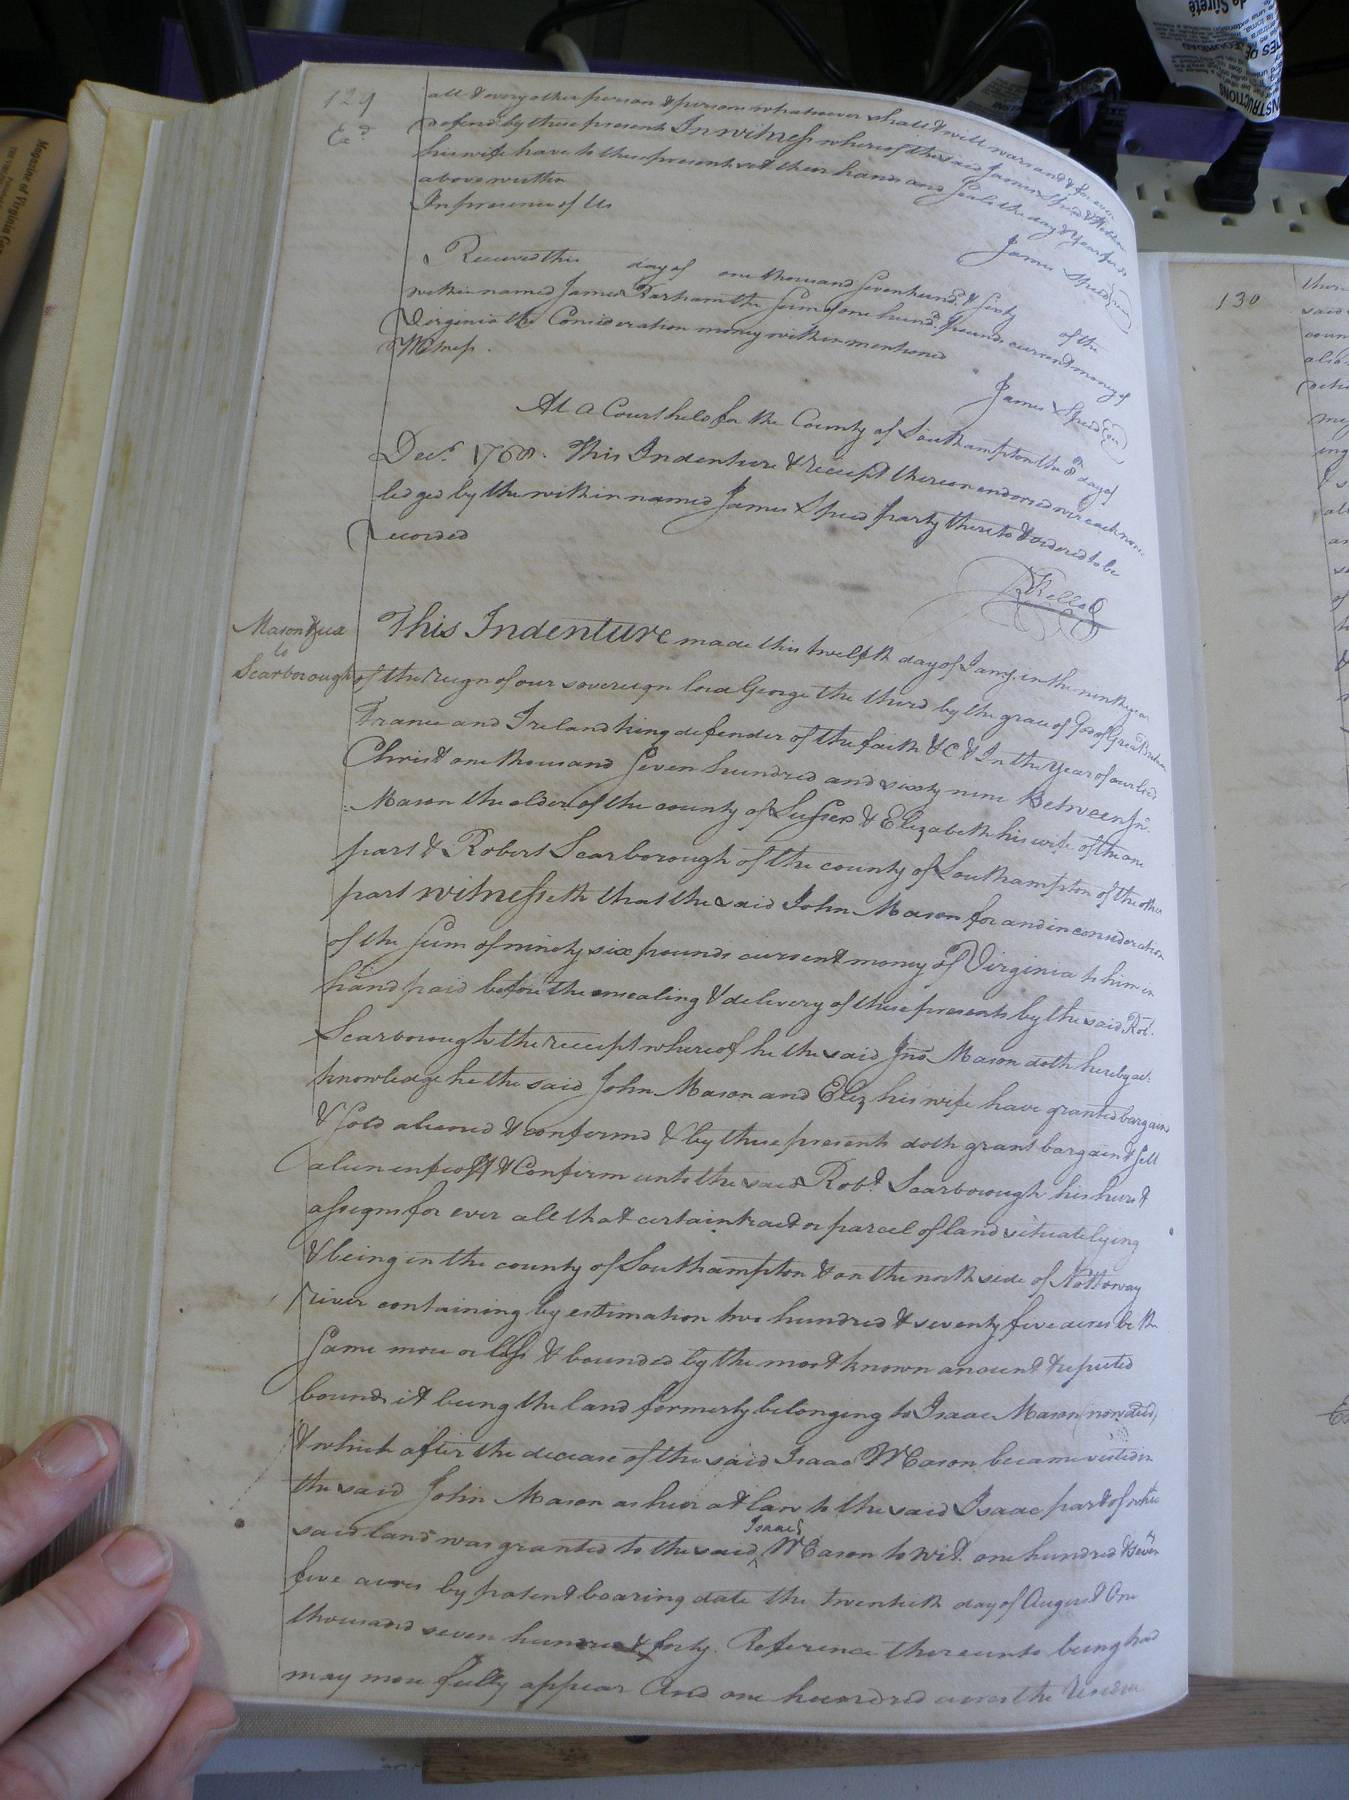 129
Exd
all & every other person & persons whatsoever shall & will warrand & forever
defend by these presents In witness whereof the said James Speed &
his wife have to these presents set their hands and Seals the day & Year first
above written
In presence of Us
James Speed
Received this day of one thousand Seven hund.d & Sixty of the
within named James Parham the Sum of one hund.d pounds current money of
Virginia the Consideration money within mentioned
Witness.
James Speed
At a Court held for the County of Southampton the 8th day of
Decr. 1768. This Indenture & receipt thereon endorsed were acknow
ledged by the within named James Speed party thereto & ordered to be
recorded
Mason & ux
to
Scarborough
This Indenture made this twelfth day of Jany. in the ninth year
of the reign of our sovereign lord George the third by the grace of God of Great Britain
France and Ireland king defender of the faith &c & In the Year of our lord
Christ one thousand Seven hundred and sixty nine Between Jno.
Mason the elder of the county of Sussex & Elizabeth his wife of the one
part & Robert Scarborough of the county of Southampton of the other
part witnesseth that the said John Mason for and in consideration
of the Sum of ninety six pounds current money of Virginia to him in
hand paid before the ensealing & delivery of these presents by the said Rot.
Scarborough the receipt whereof he the said Jno. Mason doth hereby ac:
knowledge he the said John Mason and Eliz his wife have granted bargain
& Sold aliened & confermd & by these presents doth grant bargain & Sell
alien enfeoff & Confirm unto the said Robt. Scarborough his heirs &
assigns for ever all that certain tract or parcel of land situate lying
& being in the county of Southampton & on the north side of Nottoway
river containing by estimation two hundred & seventy five acres be the
Same more or less & bounded by the most known ancient & reputed
bounds it being the land formerly belonging to Isaac Mason (now deced)
& which after the decease of the said Isaac Mason became vested in
the said John Mason as heir at law to the said Isaac part of which
said land was granted to the said Isaac Mason to wit. one hundred & seven
five acres by patent bearing date the twentieth day of August One
thousand seven hundred & forty. Reference thereunto being had
may more fully appear And one hundred acres the
130
INSTRUCTIONS
de Sûreté
Magazine of Virginia